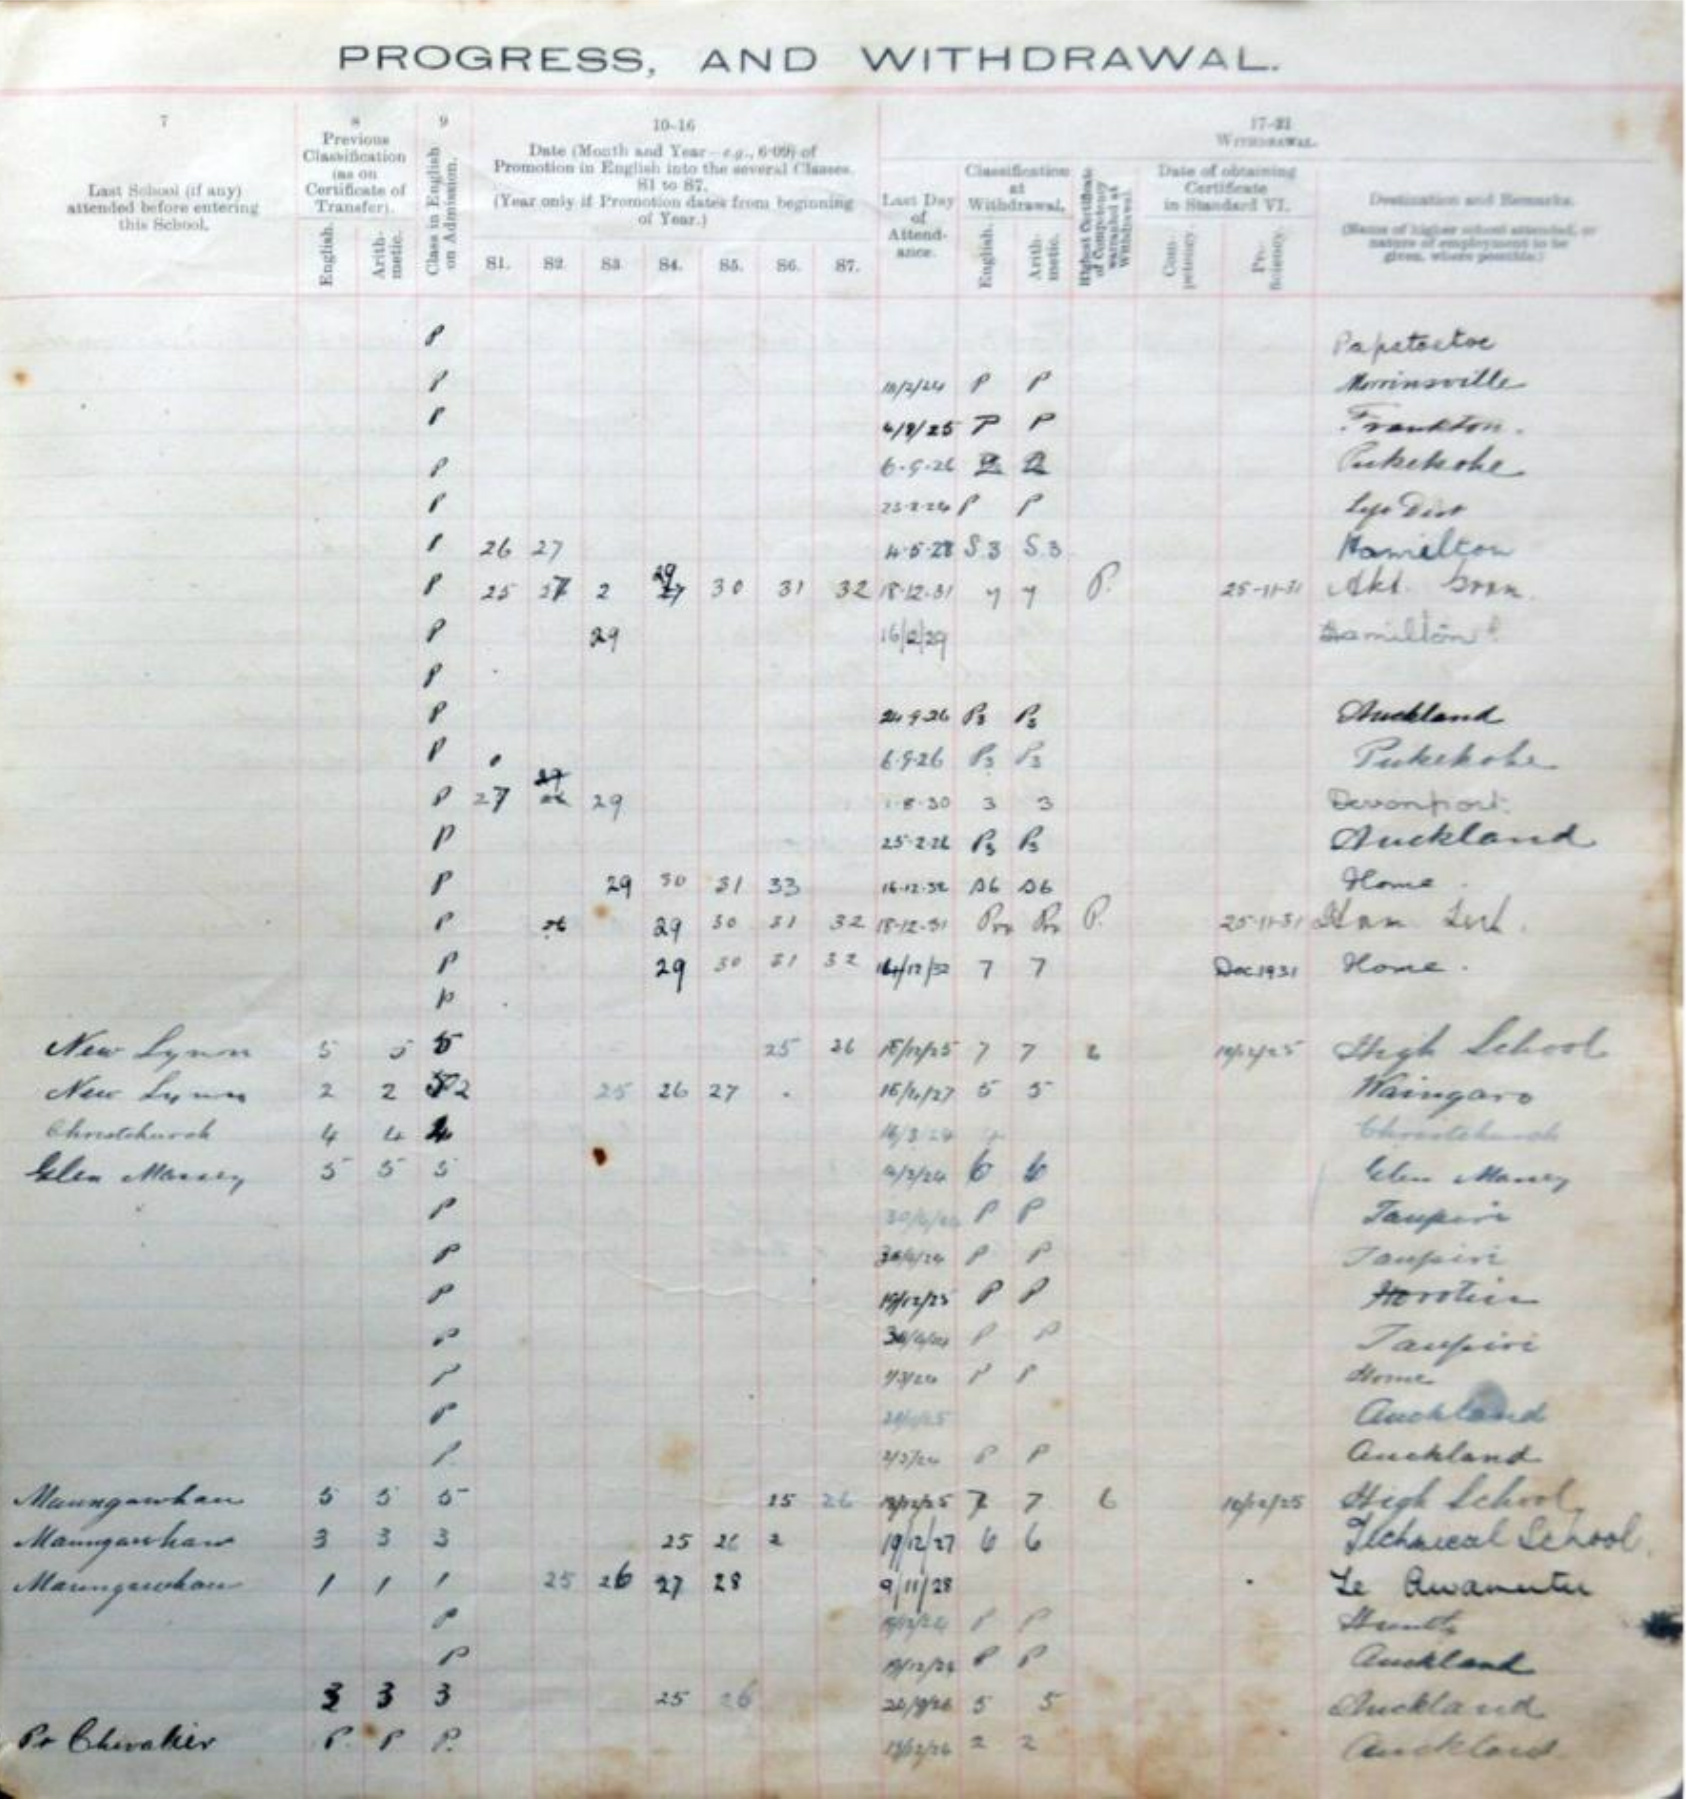 PROGRESS, AND WITHDRAWAL.
7 8 9 10-16 17-21
Last School (if any) attended before entering this School.
Previous Classification (as on Certificate of Transfer).
English. Arithmetic.
Class in English on Admission.
Date (Month and Year—e.g., 6·09) of Promotion in English into the several Classes. S1 to S7. (Year only if Promotion dates from beginning of Year.)
S1. S2. S3. S4. S5. S6. S7.
WITHDRAWAL.
Last Day of Attendance.
Classification at Withdrawal.
English. Arithmetic.
Highest Certificate of Competency warranted at Withdrawal.
Date of obtaining Certificate in Standard VI.
Competency. Proficiency.
Destination and Remarks.
(Name of higher school attended, or nature of employment to be given, where possible.)
P Papatoetoe
P P P Morrinsville
P 4/8/25 P P Frankton.
P 6-9-26 Pukekohe
P P P
P 26 27 4-5-28 S.3 S.3 Hamilton
P 25 27 2 29 30 31 32 18-12-31 7 7 P. 25-11-31 Akl. Gram.
P 29 Hamilton
P
P 24-9-26 P3 P3 Auckland
P 6-9-26 P3 P3 Pukekohe
P 27 29 1-8-30 3 3 Devonport.
P 25-2-26 P3 P3 Auckland
P 29 30 31 33 16-12-32 S6 S6 Home
P 29 30 31 32 18-12-31 P. 25-11-31 Ham.
P 29 30 31 32 /12/32 7 7 Dec 1931 Home.
P
New Lynn 5 5 5 25 26 18/12/25 7 7 6 High School
New Lynn 2 2 2 25 26 27 5 5 Waingaro
Christchurch 4 4 4 Christchurch
Glen Massey 5 5 5 6 6 Glen Massey
P P P Taupiri
P P P Taupiri
P 19/12/23 P P Horotiu
P P P Taupiri
P P P Home
P Auckland
P P P Auckland
Maungawhau 5 5 5 25 26 7 7 6 High School
Maungawhau 3 3 3 25 26 2 19/12/27 6 6 Technical School.
Maungawhau 1 1 1 25 26 27 28 9/11/28 Te Awamutu
P P P
P 19/12/24 P P Auckland
3 3 3 25 26 5 5 Auckland
Pt Chevalier P. P P. 2 2 Auckland